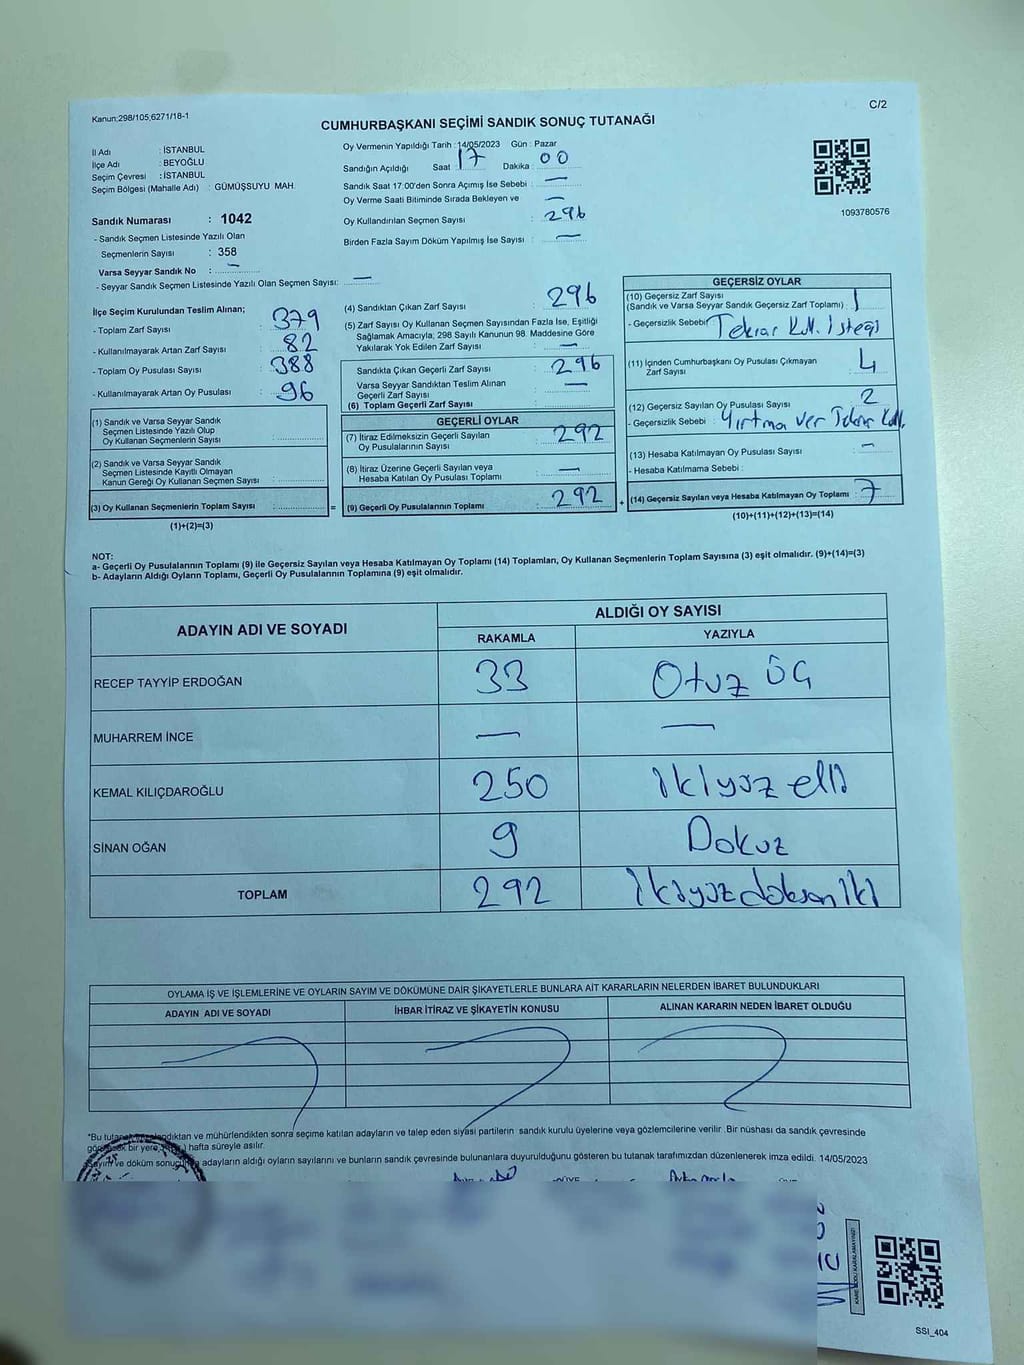 Kanun:298/105;6271/18-1
C/2
CUMHURBAŞKANI SEÇİMİ SANDIK SONUÇ TUTANAĞI
İl Adı : İSTANBUL
İlçe Adı : BEYOĞLU
Seçim Çevresi : İSTANBUL
Seçim Bölgesi (Mahalle Adı) : GÜMÜŞSUYU MAH.
Sandık Numarası : 1042
- Sandık Seçmen Listesinde Yazılı Olan
Seçmenlerin Sayısı : 358
Varsa Seyyar Sandık No : —
- Seyyar Sandık Seçmen Listesinde Yazılı Olan Seçmen Sayısı: —
Oy Vermenin Yapıldığı Tarih : 14/05/2023 Gün : Pazar
Sandığın Açıldığı Saat : 17 Dakika : 00
Sandık Saat 17:00'den Sonra Açımış İse Sebebi : —
Oy Verme Saati Bitiminde Sırada Bekleyen ve —
Oy Kullandırılan Seçmen Sayısı : 296
Birden Fazla Sayım Döküm Yapılmış İse Sayısı : —
1093780576
İlçe Seçim Kurulundan Teslim Alınan;
- Toplam Zarf Sayısı : 379
- Kullanılmayarak Artan Zarf Sayısı : 82
- Toplam Oy Pusulası Sayısı : 388
- Kullanılmayarak Artan Oy Pusulası : 96
(1) Sandık ve Varsa Seyyar Sandık
Seçmen Listesinde Yazılı Olup
Oy Kullanan Seçmenlerin Sayısı :
(2) Sandık ve Varsa Seyyar Sandık
Seçmen Listesinde Kayıtlı Olmayan
Kanun Gereği Oy Kullanan Seçmen Sayısı :
(3) Oy Kullanan Seçmenlerin Toplam Sayısı :
(1)+(2)=(3)
=
(4) Sandıktan Çıkan Zarf Sayısı : 296
(5) Zarf Sayısı Oy Kullanan Seçmen Sayısından Fazla İse, Eşitliği
Sağlamak Amacıyla; 298 Sayılı Kanunun 98. Maddesine Göre
Yakılarak Yok Edilen Zarf Sayısı : —
Sandıkta Çıkan Geçerli Zarf Sayısı : 296
Varsa Seyyar Sandıktan Teslim Alınan —
Geçerli Zarf Sayısı
(6) Toplam Geçerli Zarf Sayısı :
GEÇERLİ OYLAR
(7) İtiraz Edilmeksizin Geçerli Sayılan 292
Oy Pusulalarının Sayısı
(8) İtiraz Üzerine Geçerli Sayılan veya —
Hesaba Katılan Oy Pusulası Toplamı
(9) Geçerli Oy Pusulalarının Toplamı : 292
+
GEÇERSİZ OYLAR
(10) Geçersiz Zarf Sayısı
(Sandık ve Varsa Seyyar Sandık Geçersiz Zarf Toplamı) : 1
- Geçersizlik Sebebi : Tekrar Kul. İsteği
(11) İçinden Cumhurbaşkanı Oy Pusulası Çıkmayan
Zarf Sayısı : 4
(12) Geçersiz Sayılan Oy Pusulası Sayısı : 2
- Geçersizlik Sebebi : Yırtma ver Tekrar Kul.
(13) Hesaba Katılmayan Oy Pusulası Sayısı : —
- Hesaba Katılmama Sebebi :
(14) Geçersiz Sayılan veya Hesaba Katılmayan Oy Toplamı : 7
(10)+(11)+(12)+(13)=(14)
NOT:
a- Geçerli Oy Pusulalarının Toplamı (9) ile Geçersiz Sayılan veya Hesaba Katılmayan Oy Toplamı (14) Toplamları, Oy Kullanan Seçmenlerin Toplam Sayısına (3) eşit olmalıdır. (9)+(14)=(3)
b- Adayların Aldığı Oyların Toplamı, Geçerli Oy Pusulalarının Toplamına (9) eşit olmalıdır.
ADAYIN ADI VE SOYADI
ALDIĞI OY SAYISI
RAKAMLA YAZIYLA
RECEP TAYYİP ERDOĞAN 33 Otuz üç
MUHARREM İNCE — —
KEMAL KILIÇDAROĞLU 250 ikiyüz elli
SİNAN OĞAN 9 Dokuz
TOPLAM 292 ikiyüzdoksan iki
OYLAMA İŞ VE İŞLEMLERİNE VE OYLARIN SAYIM VE DÖKÜMÜNE DAİR ŞİKAYETLERLE BUNLARA AİT KARARLARIN NELERDEN İBARET BULUNDUKLARI
ADAYIN ADI VE SOYADI İHBAR İTİRAZ VE ŞİKAYETİN KONUSU ALINAN KARARIN NEDEN İBARET OLDUĞU
*Bu tutanak imzalandıktan ve mühürlendikten sonra seçime katılan adayların ve talep eden siyasi partilerin sandık kurulu üyelerine veya gözlemcilerine verilir .Bir nüshası da sandık çevresinde
bir yere hafta süreyle asılır.
Sayım ve döküm sonucunda adayların aldığı oyların sayılarını ve bunların sandık çevresinde bulunanlara duyurulduğunu gösteren bu tutanak tarafımızdan düzenlenerek imza edildi. 14/05/2023
KARE KODU KARALAMAYINIZ!
SSI_404